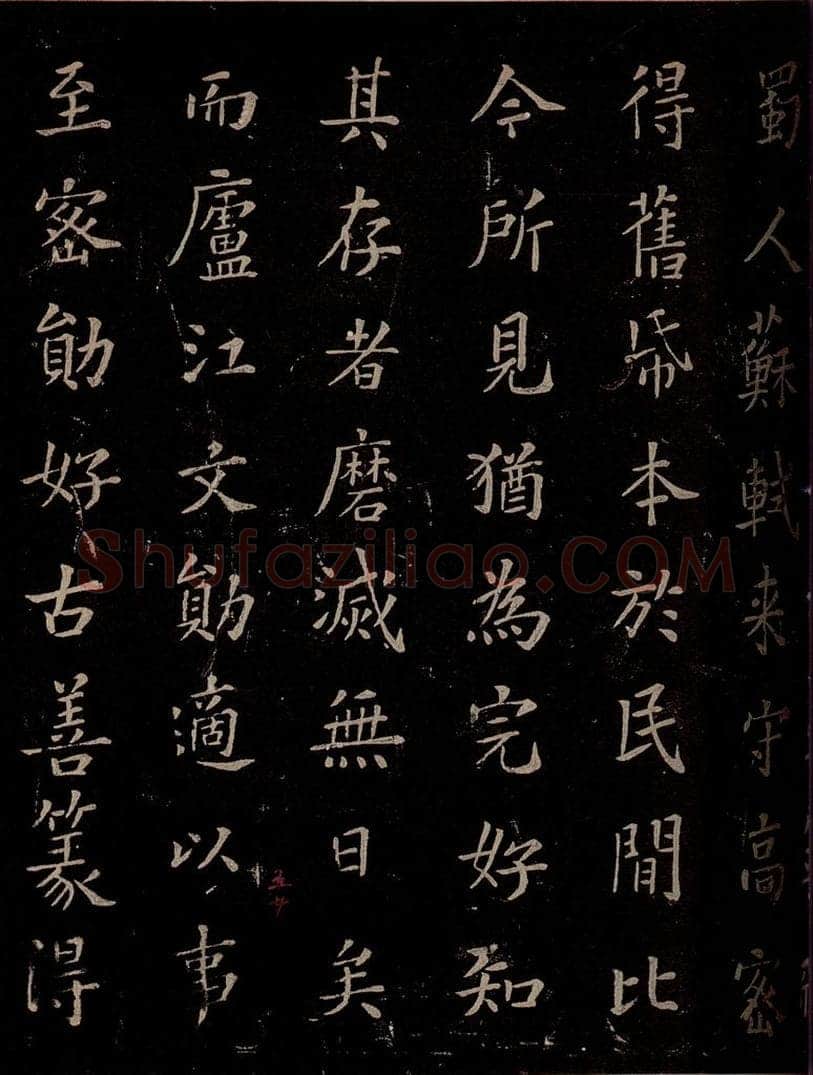 蜀人蘇軾来守高密
得舊帋本於民間比
今所見猶為完好知
其存者磨滅無日矣
而廬江文勛適以事
至密勛好古善篆得
Shufaziliao.COM